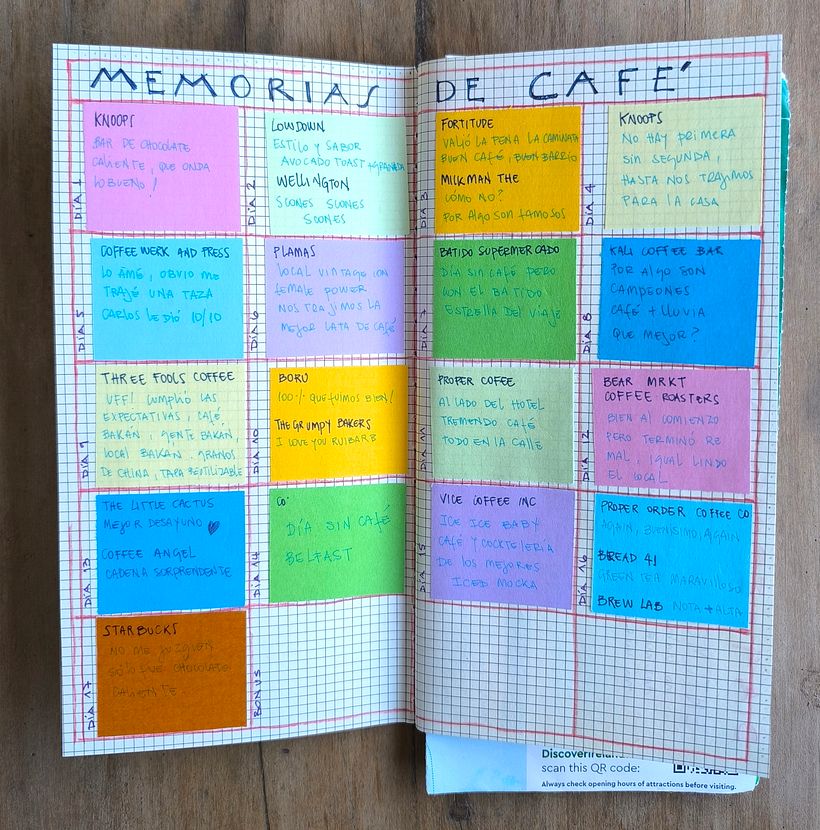 MEMORIAS DE CAFÉ
DÍA 1
KNOOPS
BAR DE CHOCOLATE
CALIENTE, QUE ONDA
LO BUENO!
DÍA 2
LOWDOWN
ESTILO Y SABOR
AVOCADO TOAST + GRANADA
WELLINGTON
SCONES SCONES
SCONES
DÍA 3
FORTITUDE
VALIÓ LA PENA LA CAMINATA
BUEN CAFÉ, BUEN BARRIO
MILKMAN THE
CÓMO NO?
POR ALGO SON FAMOSOS
DÍA 4
KNOOPS
NO HAY PRIMERA
SIN SEGUNDA,
HASTA NOS TRAJIMOS
PARA LA CASA
DÍA 5
COFFEEWERK AND PRESS
LO AMÉ, OBVIO ME
TRAJÉ UNA TAZA
CARLOS LE DIÓ 10/10
DÍA 6
PLAMAS
LOCAL VINTAGE CON
FEMALE POWER
NOS TRAJIMOS LA
MEJOR LATA DE CAFÉ
DÍA 7
BATIDO SUPERMERCADO
DÍA SIN CAFÉ PERO
CON EL BATIDO
ESTRELLA DEL VIAJE
DÍA 8
KALI COFFEE BAR
POR ALGO SON
CAMPEONES
CAFÉ + LLUVIA
QUE MEJOR?
DÍA 9
THREE FOOLS COFFEE
UFF! CUMPLIÓ LAS
EXPECTATIVAS, CAFÉ
BAKÁN, GENTE BAKÁN,
LOCAL BAKÁN. GRANOS
DE CHINA, TAPA REUTILIZABLE
DÍA 10
BORU
100% QUE FUIMOS BIEN!
THE GRUMPY BAKERS
I LOVE YOU RUIBARB
DÍA 11
PROPER COFEE
AL LADO DEL HOTEL
TREMENDO CAFÉ
TODO EN LA CALLE
DÍA 12
BEAR MRKT
COFFEE ROASTERS
BIEN AL COMIENZO
PERO TERMINÓ RE
MAL, IGUAL LINDO
EL LOCAL
DÍA 13
THE LITTLE CACTUS
MEJOR DESAYUNO
COFFEE ANGEL
CADENA SORPRENDENTE
DÍA 14
CO'
DÍA SIN CAFÉ
BELFAST
DÍA 15
VICE COFFEE INC
ICE ICE BABY
CAFÉ Y COCKTELERÍA
DE LOS MEJORES
ICED MOCKA
DÍA 16
PROPER ORDER COFFEE CO
AGAIN, BUENÍSIMO, AGAIN
BREAD 41
GREEN TEA MARAVILLOSO!
BREW LAB NOTA + ALTA
DÍA 17
STARBUCKS
NO ME JUZGUEN
SÓLO FUE CHOCOLATE
CALIENTE
BONUS
DiscoverIreland.
scan this QR code:
Always check opening hours of attractions before visiting.